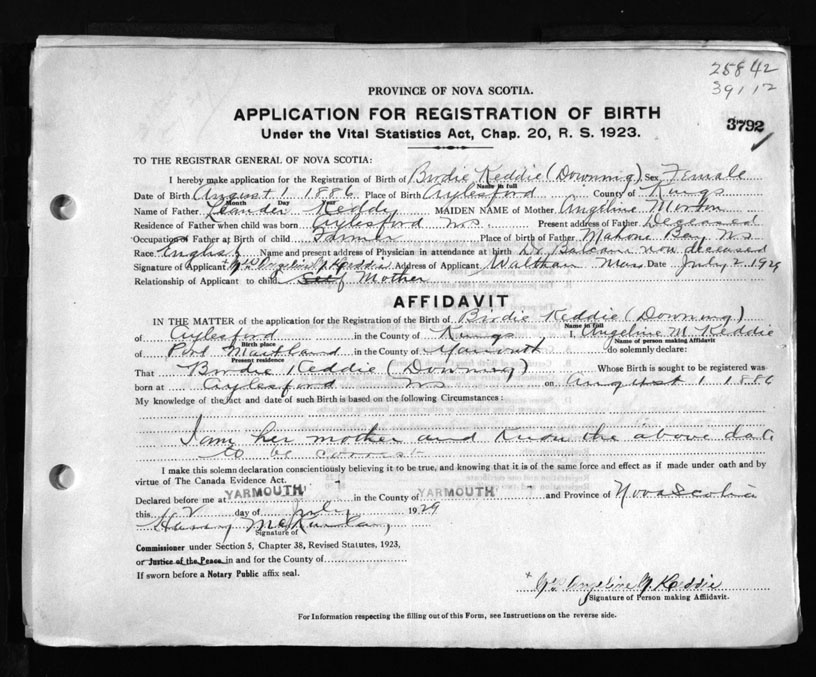 25842
39112
PROVINCE OF NOVA SCOTIA.
APPLICATION FOR REGISTRATION OF BIRTH
3792
Under the Vital Statistics Act, Chap. 20, R. S. 1923.
TO THE REGISTRAR GENERAL OF NOVA SCOTIA:
I hereby make application for the Registration of Birth of Birdie Keddie (Downing) Sex Female
Name in full
Date of Birth August 1 1886 Place of Birth Aylesford County of Kings
Month Day Year
Name of Father Leander Keddy MAIDEN NAME of Mother Angeline Morton
Residence of Father when child was born Aylesford N.S. Present address of Father Deceased
Occupation of Father at Birth of child Farmer Place of birth of Father Mahone Bay N.S
Race English Name and present address of Physician in attendance at birth Dr now deceased
Signature of Applicant Mrs Angeline Keddie Address of Applicant Waltham Mass Date July 2 1929
Relationship of Applicant to child Self Mother
AFFIDAVIT
IN THE MATTER of the application for the Registration of the Birth of Birdie Keddie (Downing)
Name in full
of Aylesford in the County of Kings I, Angeline M. Keddie
Birth place
Name of person making Affidavit
of Port Maitland in the County of Yarmouth do solemnly declare:
Present residence
That Birdie Keddie (Downing) Whose Birth is sought to be registered was
born at Aylesford N.S on August 1 1886
My knowledge of the fact and date of such Birth is based on the following Circumstances:
I am her mother and know the above date
to be correct
I make this solemn declaration conscientiously believing it to be true, and knowing that it is of the same force and effect as if made under oath and by
virtue of The Canada Evidence Act.
Declared before me at YARMOUTH in the County of YARMOUTH and Province of Nova Scotia
this 2 day of July 1929
Harry
Signature of
Commissioner under Section 5, Chapter 38, Revised Statutes, 1923,
or Justice of the Peace in and for the County of
If sworn before a Notary Public affix seal.
x Mrs Angeline M Keddie
Signature of Person making Affidavit.
For Information respecting the filling out of this Form, see Instructions on the reverse side.